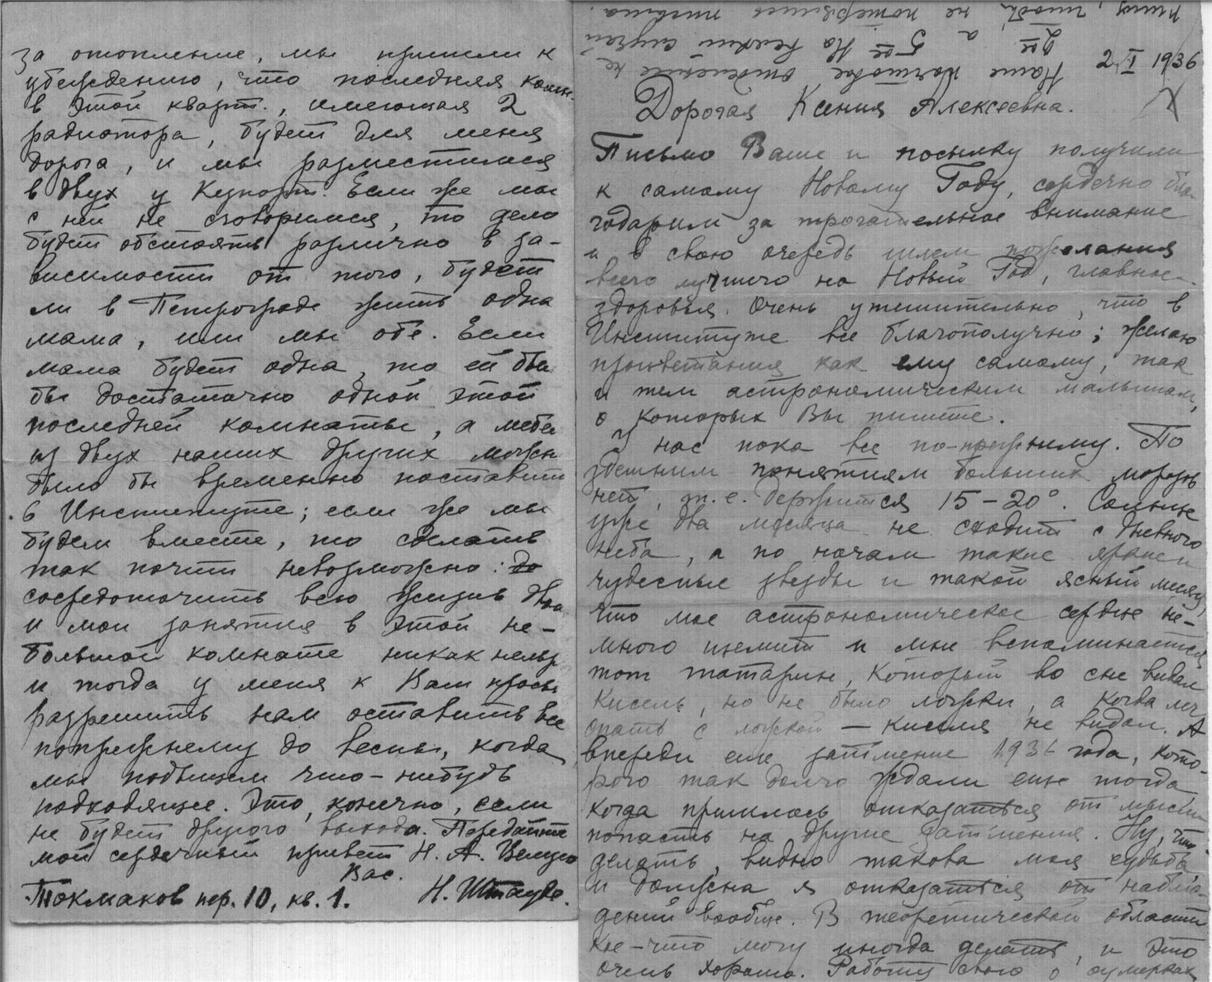 за отопление, мы пришли к
убеждению, что последняя комн.
в этой кварт., имеющая 2
радиатора, будет для меня
дорога, и мы разместимся
в двух у Если же мы
с ней не сговоримся, то дело
будет обстоять различно в за-
висимости от того, будет
ли в Петрограде жить одна
мама, или мы обе. Если
мама будет одна, то ей было
бы достаточно одной этой
последней комнаты, а мебель
из двух наших других можно
было бы временно поставить
в Институте; если же мы
будем вместе, то сделать
так почти невозможно:
сосредоточить всю жизнь двоих
и мои занятия в этой не-
большой комнате никак нельзя
и тогда у меня к Вам просьба
разрешить нам оставить все
попрежнему до весны, когда
мы подыщем что-нибудь
подходящее. Это, конечно, если
не будет другого выхода. Передайте
мой сердечный привет Н. А.
Вас.
Токмаков пер. 10, кв. 1. Н. Штауде.
пишу, чтобы не потерялись письма.
2ое, а 5ое. На всякий случай
Наше почтовое отделение не
2 I 1936
Дорогая Ксения Алексеевна.
Письмо Ваше и посылку получили
к самому Новому Году, сердечно бла-
годарим за трогательное внимание
и в свою очередь шлем пожелания
всего лучшего на Новый Год, главное
здоровья. Очень утешительно, что в
Институте все благополучно; желаю
процветания как ему самому, так
и тем астрономическим малышам,
о которых Вы пишите.
У нас пока все по-прежнему. По
здешним понятиям больших морозов
нет, т.е. держится 15–20°. Солнце
уже два месяца не сходит с дневного
неба, а по ночам такие яркие и
чудесные звезды и такой ясный месяц,
что мое астрономическое сердце не-
много щемит и мне вспоминается
тот татарин, который во сне видал
кисель, но не было ложки, а когда лег
спать с ложкой — киселя не видал. А
впереди еще затмение 1936 года, кото-
рого так долго ждали еще тогда
когда пришлось отказаться от мысли
попасть на другие затмения. Ну, что
делать, видно такова моя судьба
и должна я отказаться от наблю-
дений вообще. В теоретической области
кое-что могу иногда делать, и это
очень хорошо. Работу свою о сумерках